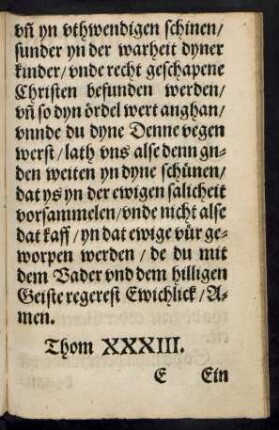 vñ yn vthwendigen schinen/
sunder yn der warheit dyner
kinder/ vnde recht geschapene
Christen befunden werden/
vñ so dyn ördel wert anghan/
vnnde du dyne Denne vegen
werst/ lath vns alse denn gn-
den weiten yn dyne schünen/
dat ys yn der ewigen salicheit
vorsammelen/ vnde nicht alse
dat kaff/ yn dat ewige vür ge-
worpen werden/ de du mit
dem Vader vnd dem hilligen
Geiste regerest Ewichlick/ A-
men.
Thom XXXIII.
E Ein